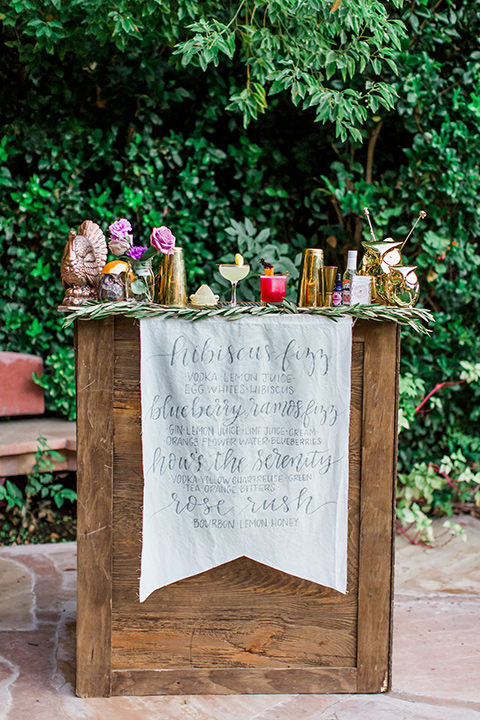 hibiscus fizz
VODKA·LEMON JUICE·
EGG WHITES·HIBISCUS
blueberry ramos fizz
GIN·LEMON JUICE·LIME JUICE·CREAM
ORANGE FLOWER WATER·BLUEBERRIES
how's the serenity
VODKA·YELLOW CHARTREUSE·GREEN
TEA·ORANGE BITTERS
rose rush
BOURBON·LEMON·HONEY